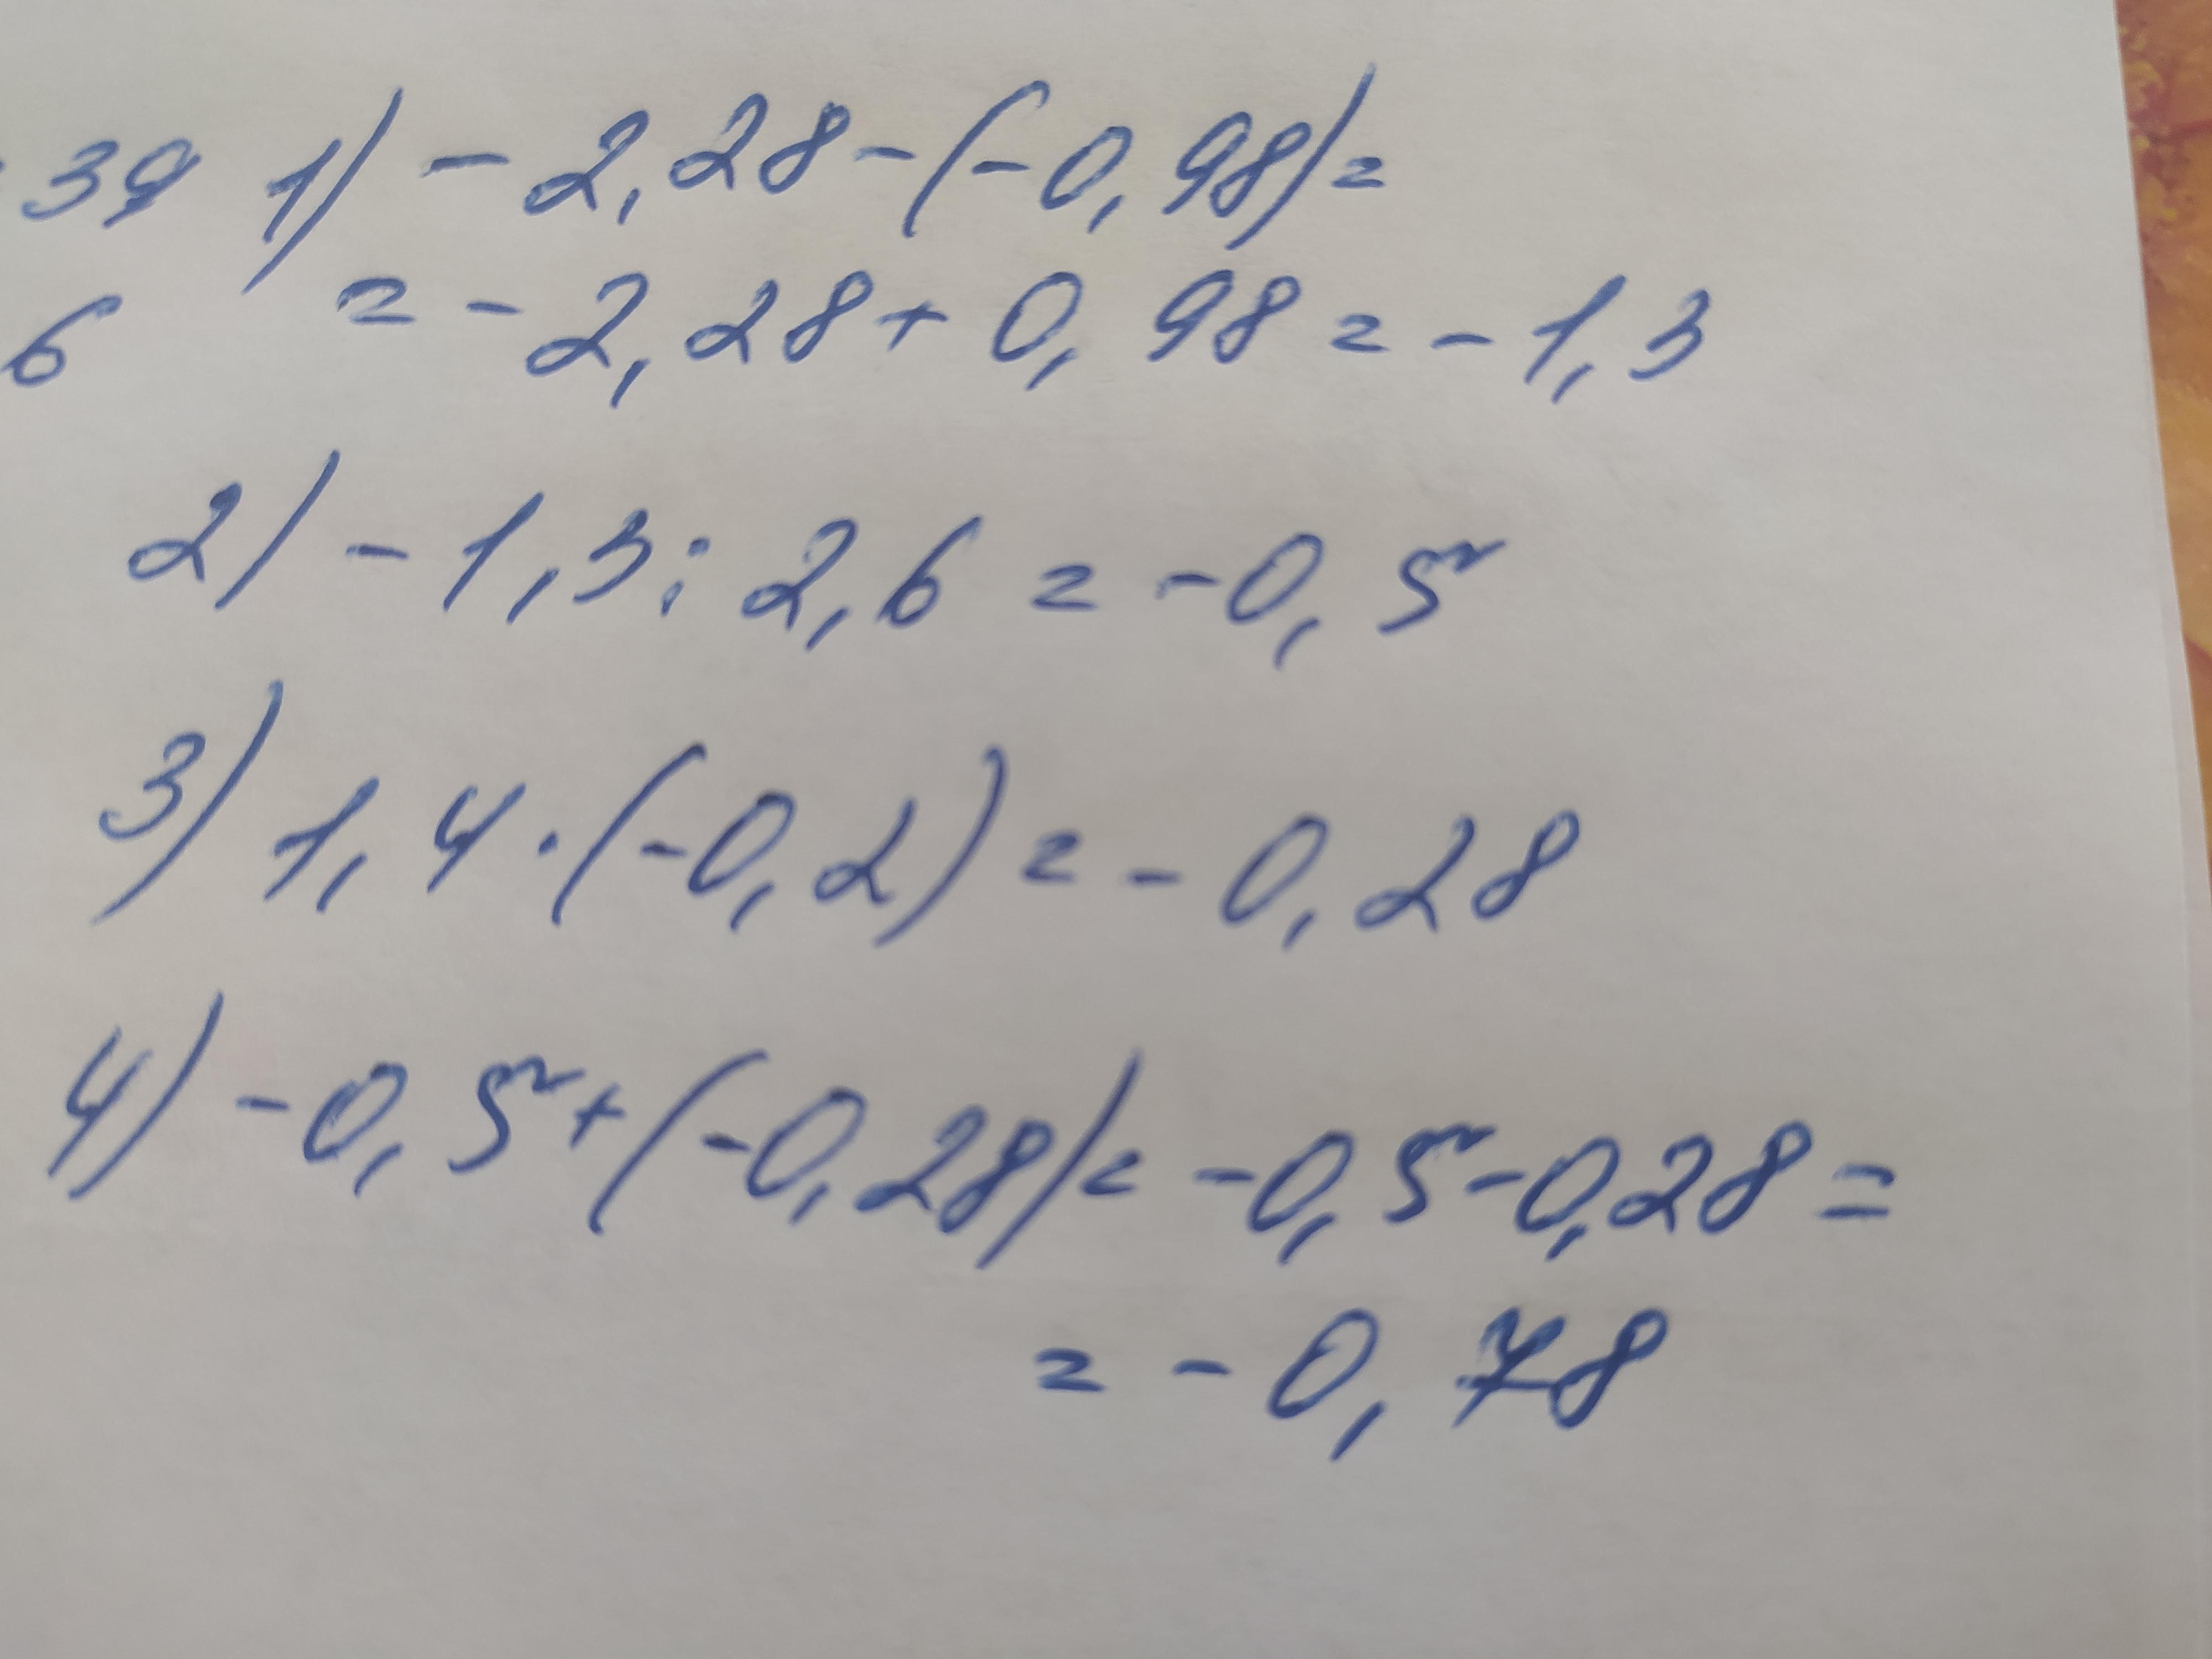 39 1) - 2,28 - (-0,98) =
6 = - 2,28 + 0,98 = - 1,3
2) - 1,3 : 2,6 = - 0,5
3) 1,4 · (-0,2) = - 0,28
4) - 0,5 + (-0,28) = - 0,5 - 0,28 =
= - 0,78